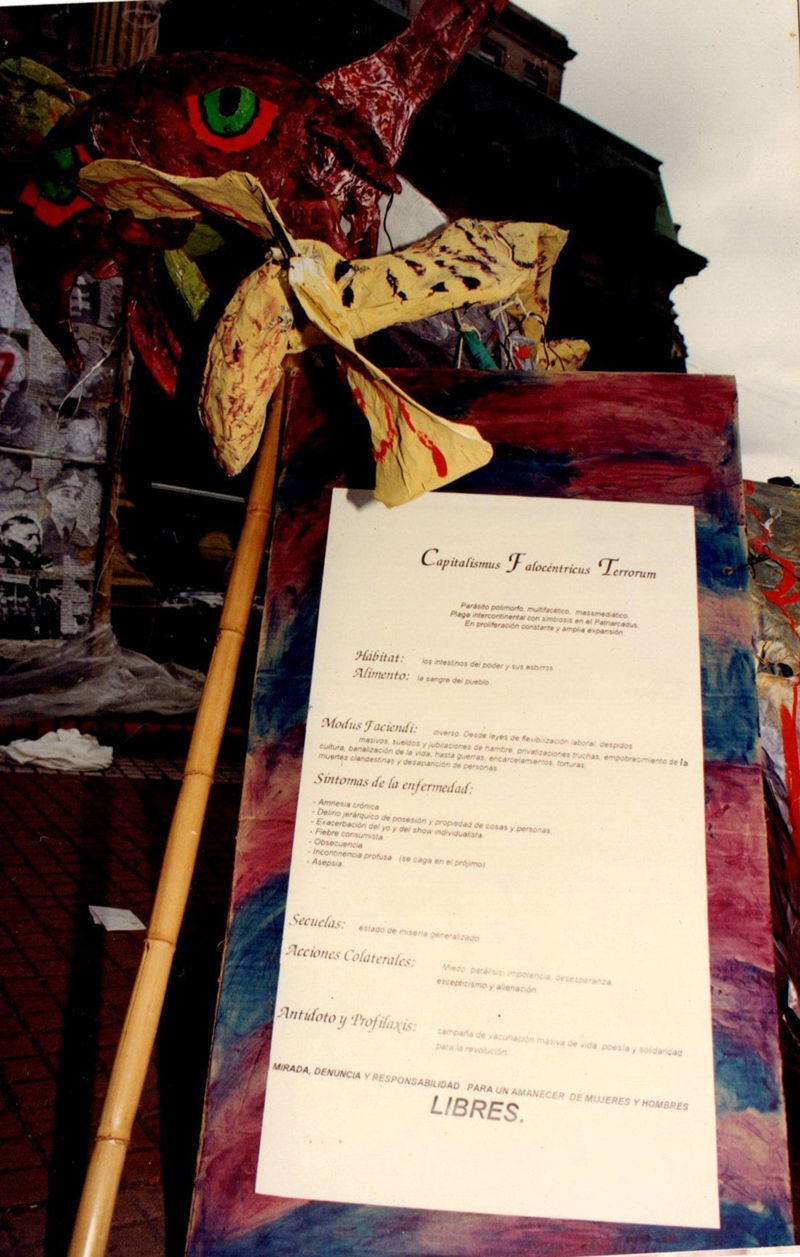 Capitalismus Falocéntricus Terrorum
Parásito polimorfo, multifacético, massmediático.
Plaga intercontinental con simbiosis en el Patriarcadus.
En proliferación constante y amplia expansión.
Hábitat: los intestinos del poder y sus esbirros.
Alimento: la sangre del pueblo.
Modus Faciendi: diverso. Desde leyes de flexibilización laboral, despidos
masivos, sueldos y jubilaciones de hambre, privatizaciones truchas, empobrecimiento de la
cultura, banalización de la vida, hasta guerras, encarcelamientos, torturas,
muertes clandestinas y desaparición de personas.
Síntomas de la enfermedad:
- Amnesia crónica.
- Delirio jerárquico de posesión y propiedad de cosas y personas.
- Exacerbación del yo y del show individualista.
- Fiebre consumista.
- Obsecuencia.
- Incontinencia profusa (se caga en el prójimo)
- Asepsia.
Secuelas: estado de miseria generalizado.
Acciones Colaterales: Miedo, parálisis, impotencia, desesperanza,
escepticismo y alienación.
Antídoto y Profilaxis: campaña de vacunación masiva de vida, poesía y solidaridad
para la revolución.
MIRADA, DENUNCIA Y RESPONSABILIDAD PARA UN AMANECER DE MUJERES Y HOMBRES
LIBRES.